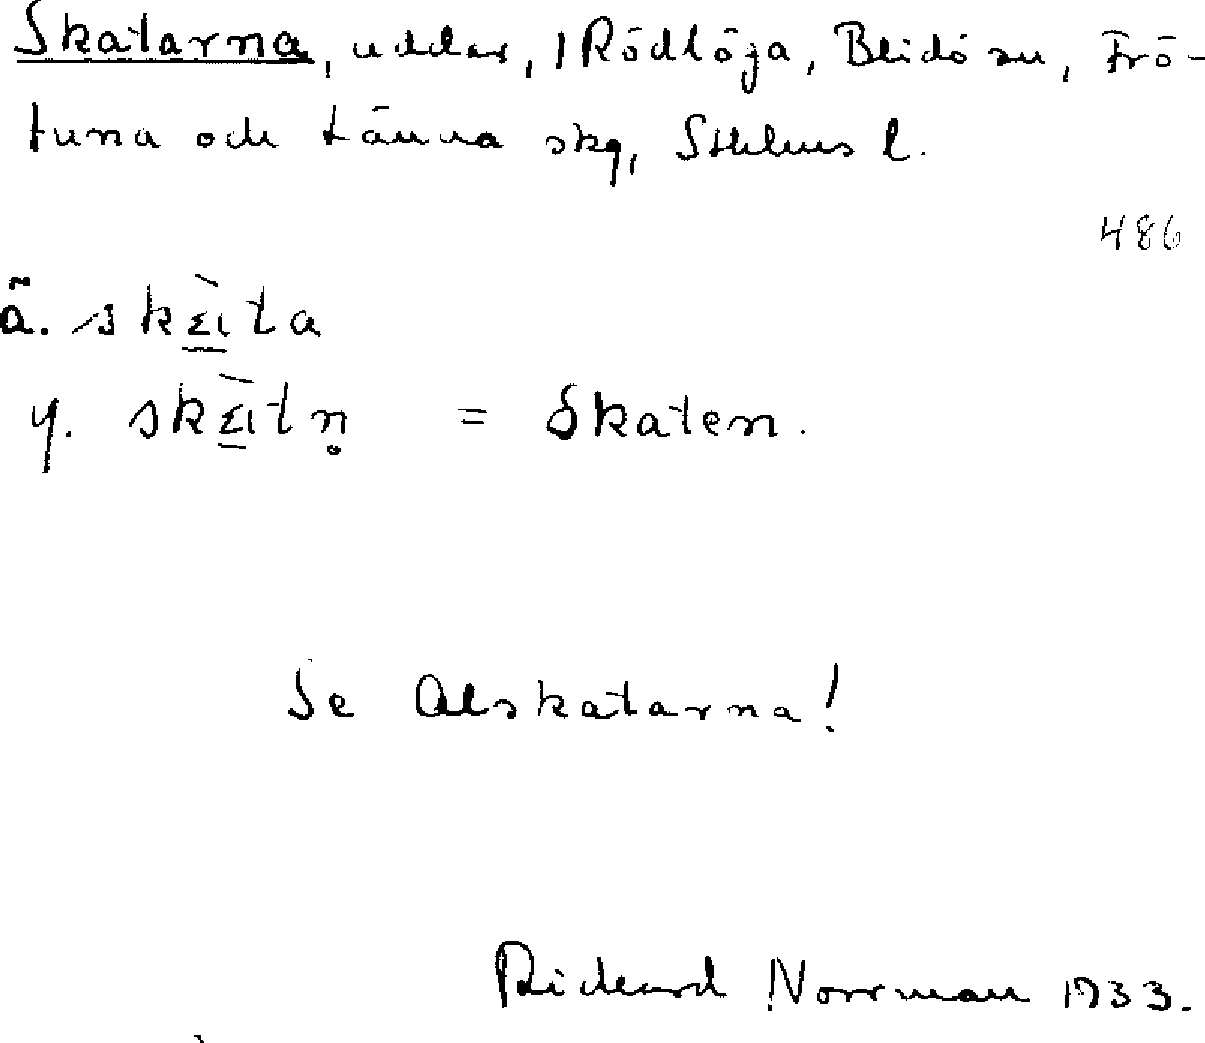 Skatarna, uddar, 1 Rödlöga, Blidö sn, Frö-
tuna och Länna skg, Sthlms l.
486
ä. skɛ̀ita
y. skɛ̀itn̥ = Skaten.
Se Alskatarna!
Rickard Norrman 1933.